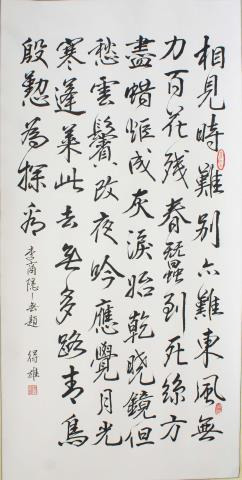 相見時難別亦難東風無
力百花残春蠶到死絲方
盡蜡炬成灰淚始乾晓鏡但
愁雲鬢改夜吟應覺月光
寒蓬萊此去無多路青鳥
殷懃為探看
李商隐無題
得雄